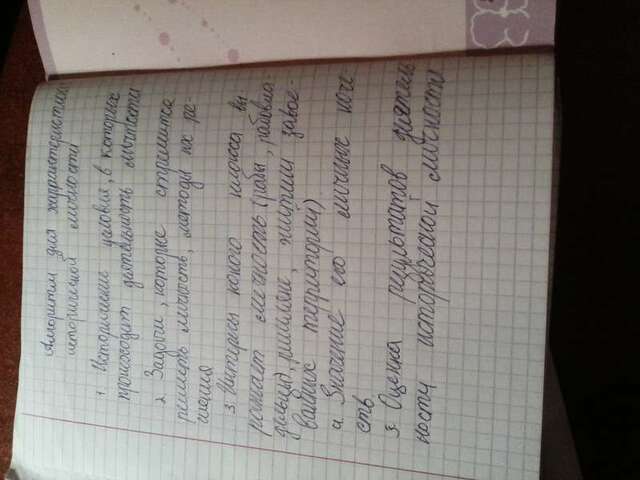 Алгоритм для характеристики
исторической личности
1 Исторические условия, в которых
происходит деятельность личности
2. Задачи, которые стремится
решить личность, методы их ре-
шения
3. Интересы какого класса вы
ражает личность (рабы, рабовла-
дельцы, римляне, жители завое-
ванных территорий)
4 Значение его личных каче
ств
5 Оценка результатов деятель
ности исторической личности